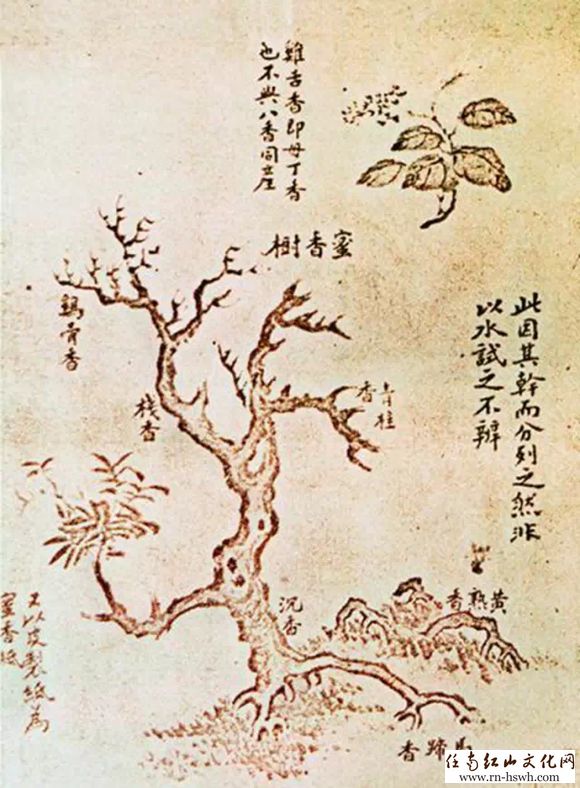 雞舌香即母丁香
也不與八香同產
蜜香樹
此因其幹而分列之然非
以水試之不辨
鷄骨香
棧香
青桂
香
沉香
黃熟香
馬蹄香
又以皮製紙為
蜜香紙
任南红山文化网
www.rn-hswh.com